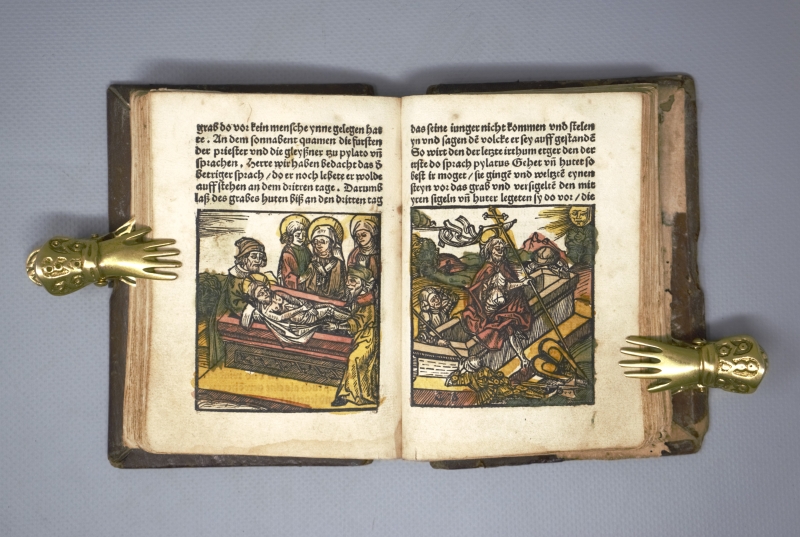 grab do vor kein mensche ynne gelegen hat
te. An dem sonnabent quamen die fursten
der priester vnd die gleyßner tzu pylato vñ
sprachen, Herre wir haben bedacht das d̕
betriger sprach / do er noch lebete er wolde
auff stehen an dem dritten tage. Darumb
laß des grabes huten biß an den dritten tag
das seine iunger nicht kommen vnd stelen
yn vnd sagen dē volcke er sey auff gestandē
So wirt den der letzte irthum erger den der
erste do sprach pylatus Gehet vñ hutet so
best ir moget / sie gingē vnd weltzeē eynen
steyn vor das grab vnd versigeltē den mit
yren sigeln vñ huter legeten sy do vor / die